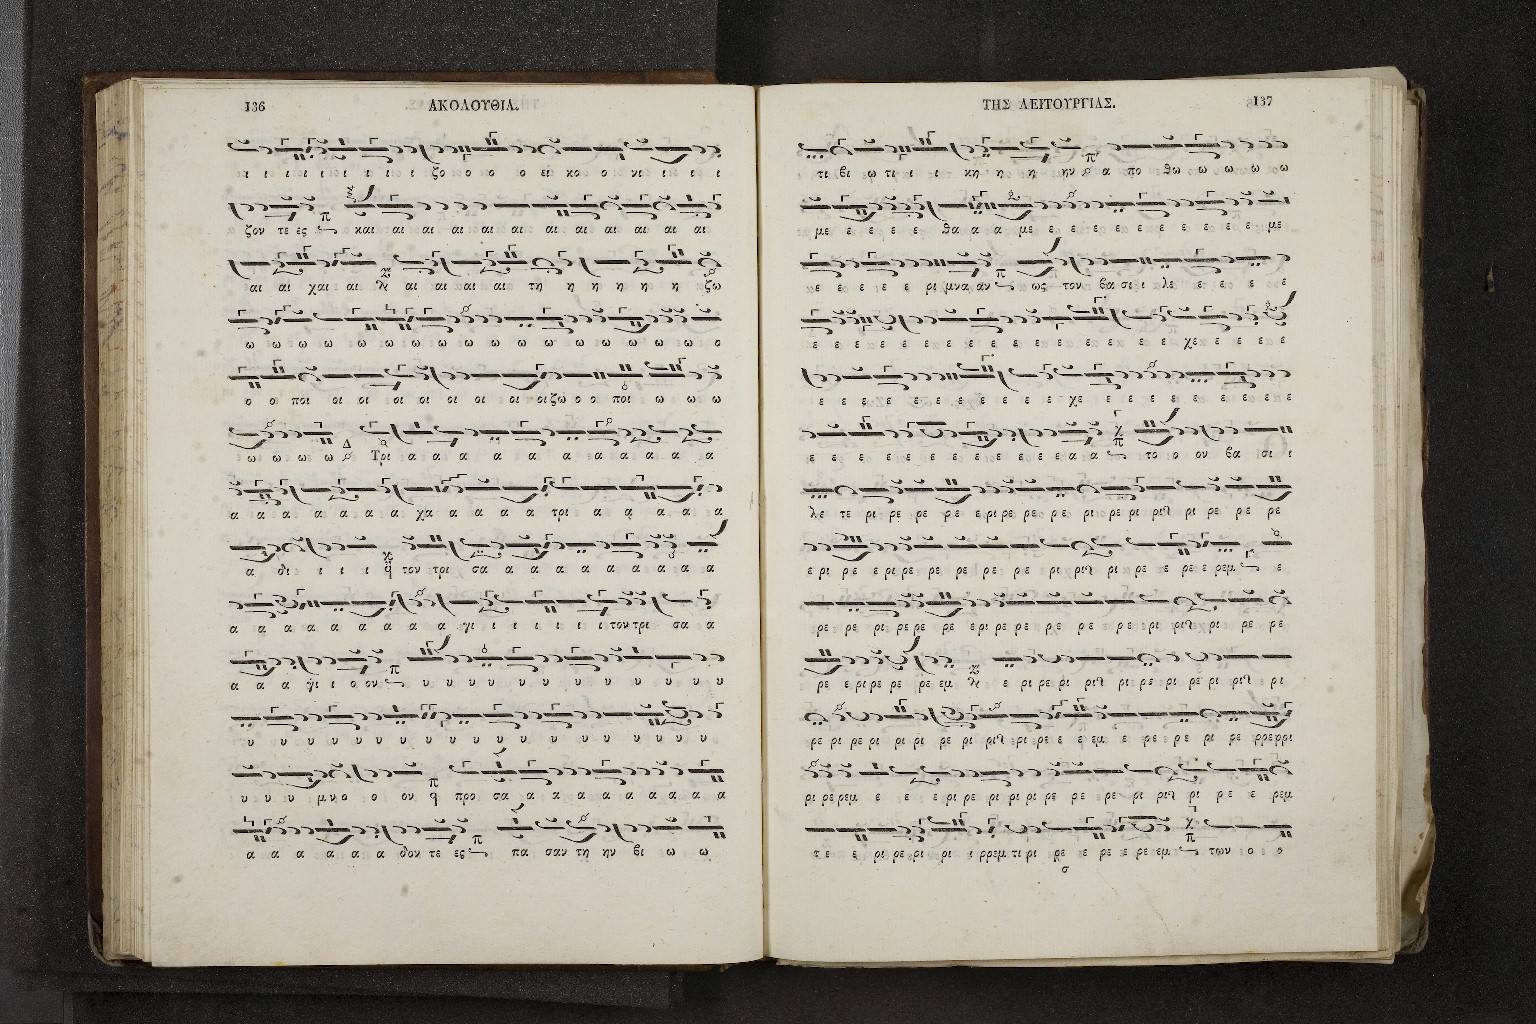 136
ΑΚΟΛΟΥΘΙΑ.
ι ι ι ι ι ι ι ι ι ζο ο ο ο ει κο ο νι ι ι ι
ζον τε ες και αι αι αι αι αι αι αι αι αι αι αι
αι αι χαι αι αι αι αι αι αι τη η η η η η ζω
ω ω ω ω ω ω ω ω ω ω ω ω ω ω ω ω ω ο
ο ο ποι οι οι οι οι οι οι οι οι οι ζω ο ο ποι ω ω ω
ω ω ω ω Τρι α α α α α α α α α α α α
α α α α α α α χα α α α α τρι α α α α α
α δι ι ι ι τον τρι σα α α α α α α α α α
α α α α α α α α α γι ι ι ι ι ι ι τον τρι σα α
α α α γι ι ο ον υ υ υ υ υ υ υ υ υ υ υ υ υ
υ υ υ υ υ υ υ υ υ υ υ υ υ υ υ υ υ υ υ
υ υ υ μνο ο ο ον προ σα α α α α α α α α α
α α α α α α δον τε ες πα σαν τη ην βι ω ω
ΤΗΣ ΛΕΙΤΟΥΡΓΙΑΣ.
137
τι βι ω τι ι ι κη η η ην α πο θω ω ω ω ω
με ε ε ε ε θα α α με ε ε ε ε ε ε ε ε ε ε με
ε ε ε ε ε ρι μνα αν ως τον βα σι ι λε ε ε ε ε
ε ε ε ε ε ε ε ε ε ε ε ε ε ε ε χε ε ε ε ε
ε ε ε ε ε ε ε ε ε ε ε χε ε ε ε ε ε ε ε ε
ε ε ε ε ε ε ε ε ε ε ε ε α α το ο ον βα σι ι
λε τε ρι ρε ρε ρε ε ρι ρε ρε ρε ρι ρε ρι ριϟ ρι ρε ρε ρε
ε ρι ρε ε ρι ρε ρε ρε ρε ρε ρι ριϟ ρι ρε ε ρε ε ρεμ ε
ρε ρε ρι ρε ρε ρε ε ρι ρε ρε ρε ρε ρε ρι ριϟ ρι ρε ρε
ρε ε ρι ρε ρε ρε εμ ε ρι ρε ρι ριϟ ρι ρε ρι ρε ρι ριϟ ρι
ρε ρι ρε ρι ρι ρι ρε ρι ριϟ ρι ρε ε ε εμ ε ρε ρε ρι ρε ρρερρι
ρι ρε ρεμ ε ε ε ρι ρε ρι ρι ρι ρε ρε ρε ρι ριϟ ρι ρε ε ρεμ
τε ε ρι ρε ρι ρι ι ρρεμ τι ρι ρε ε ρε ε ρε εμ των ο ο
σ